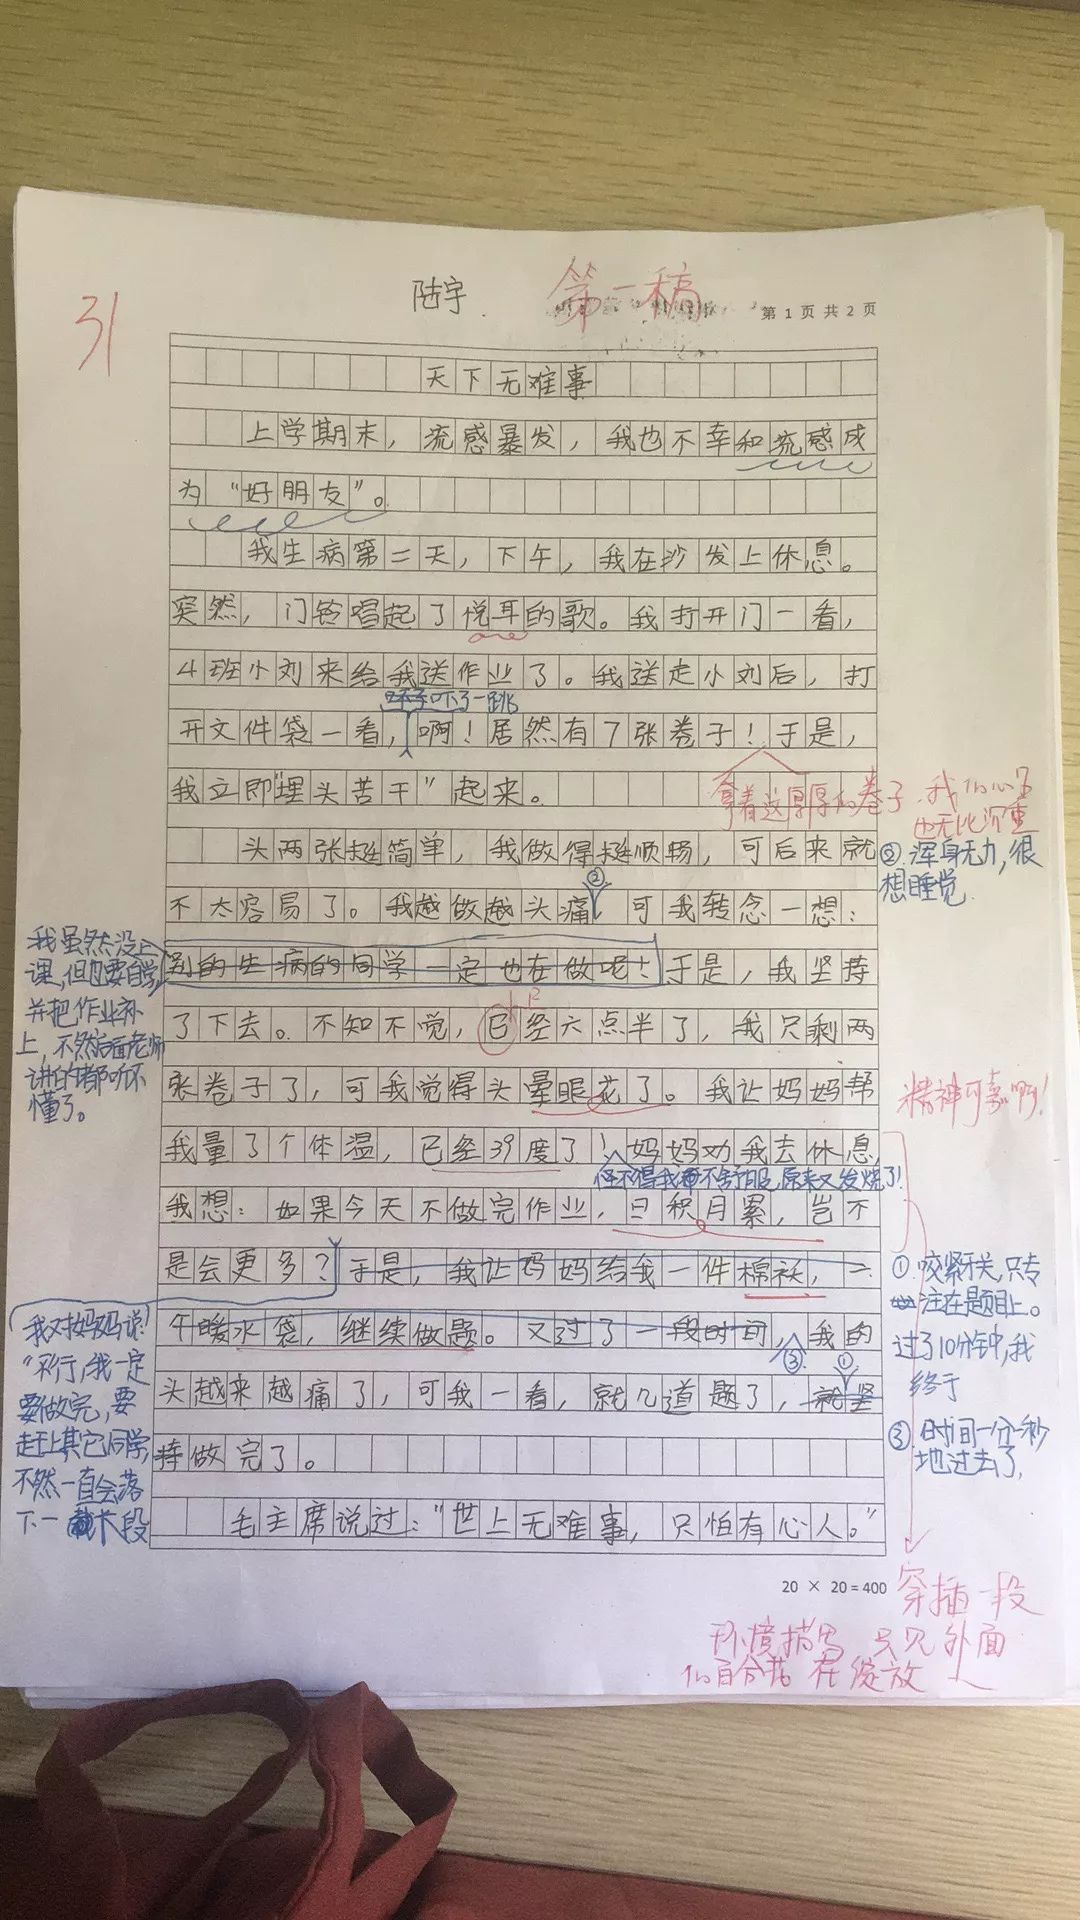 31
陆宇
第一稿
第 1 页 共 2 页
天下无难事
上学期末，流感暴发，我也不幸和流感成
为“好朋友”。
我生病第二天，下午，我在沙发上休息。
突然，门铃唱起了悦耳的歌。我打开门一看，
4班小刘来给我送作业了。我送走小刘后，打
吓了一跳
开文件袋一看，啊！居然有7张卷子！于是，
我立即“埋头苦干”起来。
拿着这厚厚的卷子，我的心
也无比沉重
头两张挺简单，我做得挺顺畅，可后来就
②浑身无力，很
想睡觉
②
不太容易了。我越做越头痛，可我转念一想：
我虽然没上
课，但也要自学，
并把作业补
上，不然后面老师
讲的都听不
懂了。
别的生病的同学一定也在做呢！于是，我坚持
了下去。不知不觉，已经六点半了，我只剩两
张卷子了，可我觉得头晕眼花了。我让妈妈帮
精神可嘉啊！
我量了个体温，已经39度了！妈妈劝我去休息
怪不得我不舒服，原来又发烧了！
我想：如果今天不做完作业，日积月累，岂不
是会更多？于是，我让妈妈给我一件棉袄，一
午暖水袋，继续做题。又过了一段时间，我的
③
①
头越来越痛了，可我一看，就几道题了，就坚
持做完了。
我又对妈妈说：
“不行，我一定
要做完，要
赶上其它同学，
不然一直会落
下一大段
①咬紧牙关，只专
注在题目上。
过了10分钟，我
终于
③时间一分一秒
地过去了，
毛主席说过：“世上无难事，只怕有心人。”
20 × 20 = 400
穿插一段
环境描写 只见外面
在绽放